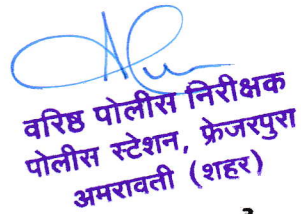 वरिष्ठ पोलीस निरीक्षक
पोलीस स्टेशन, फ्रेजरपुरा
अमरावती (शहर)